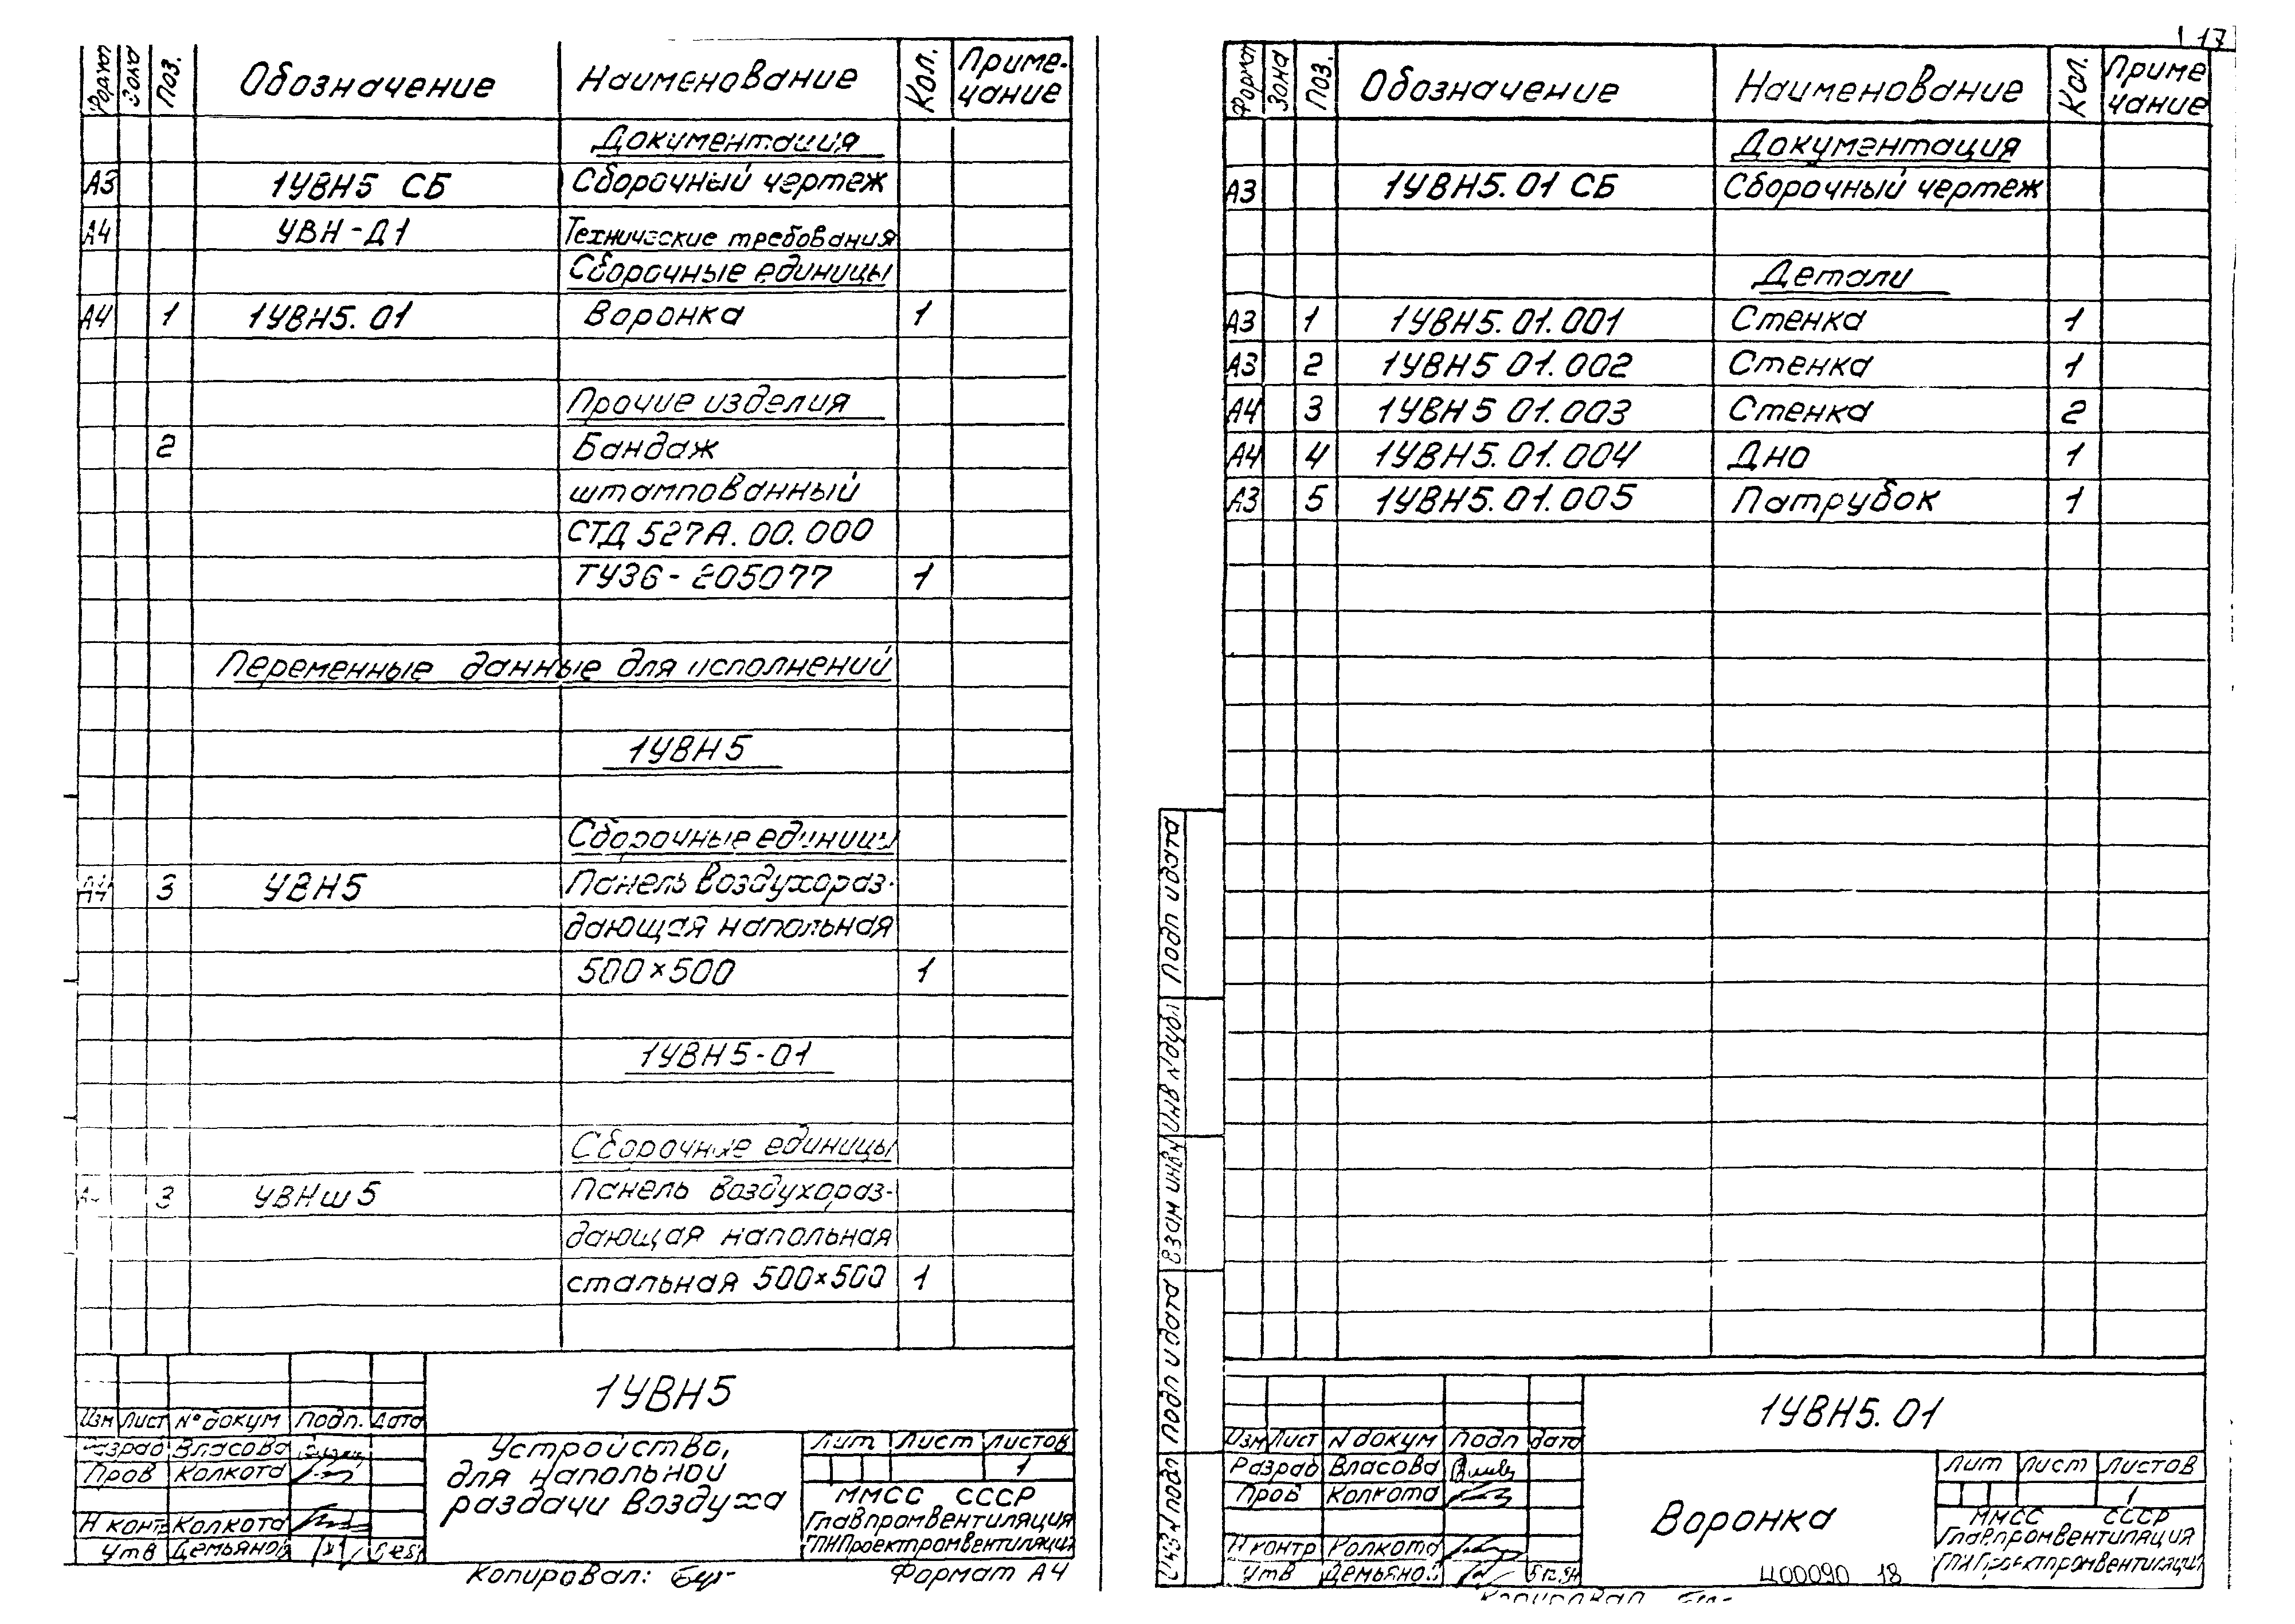 Формат Зона Поз. Обозначение Наименование Кол. Приме-
чание
Документация
А3 1УВН5 СБ Сборочный чертеж
А4 УВН-Д1 Технические требования
Сборочные единицы
А4 1 1УВН5.01 Воронка 1
Прочие изделия
2 Бандаж
штампованный
СТД 527А.00.000
ТУ36-205077 1
Переменные данные для исполнений
1УВН5
Сборочные единицы
А4 3 УВН5 Панель воздухораз-
дающая напольная
500×500 1
1УВН5-01
Сборочные единицы
3 УВНш5 Панель воздухораз-
дающая напольная
стальная 500×500 1
1УВН5
Изм Лист № докум Подп. Дата
Разраб Власова
Пров Колкота
Н контр Колкота
Утв Демьянов
Устройство,
для напольной
раздачи воздуха
Лит Лист Листов
1
ММСС СССР
Главпромвентиляция
ГПИПроектпромвентиляция
Копировал: Формат А4
17
Формат Зона Поз. Обозначение Наименование Кол. Приме
чание
Документация
А3 1УВН5.01 СБ Сборочный чертеж
Детали
А3 1 1УВН5.01.001 Стенка 1
А3 2 1УВН5 01.002 Стенка 1
А4 3 1УВН5 01.003 Стенка 2
А4 4 1УВН5.01.004 Дно 1
А3 5 1УВН5.01.005 Патрубок 1
Подп и дата
Инв № дубл
Взам инв №
Подп и дата
Инв № подл
1УВН5.01
Изм Лист № докум Подп дата
Разраб Власова
Пров Колкота
Н контр Колкота
Утв Демьянов
Воронка
Лит Лист Листов
1
ММСС СССР
Главпромвентиляция
ГПИПроектпромвентиляция
Ц00090 18
Копировал